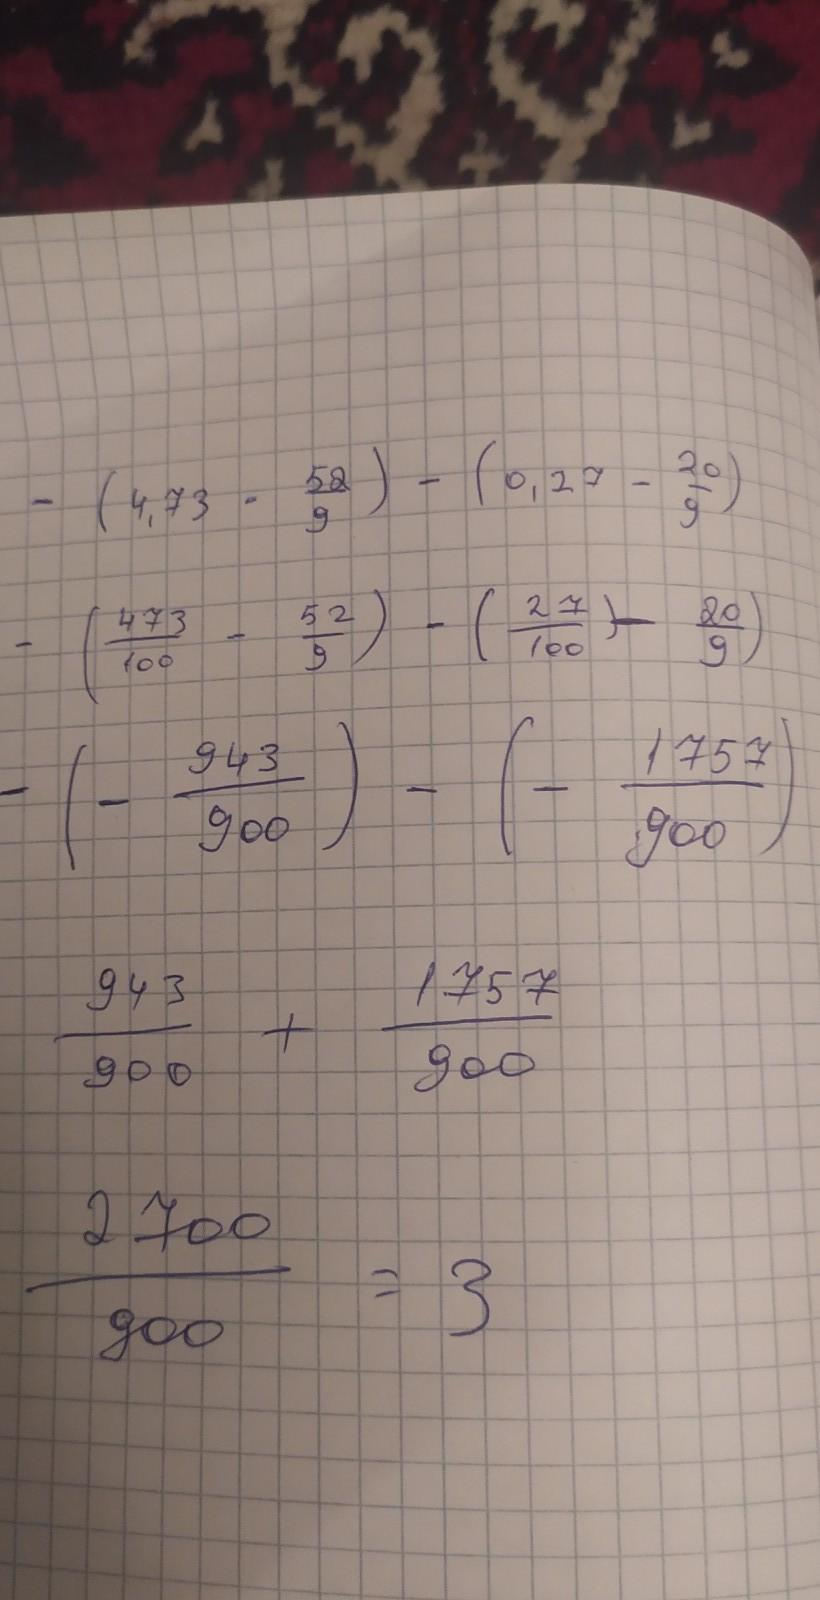 - (4,73 - 52/9) - (0,27 - 20/9)
- (473/100 - 52/9) - (27/100) - 20/9)
- (- 943/900) - (- 1757/900)
943/900 + 1757/900
2700/900 = 3